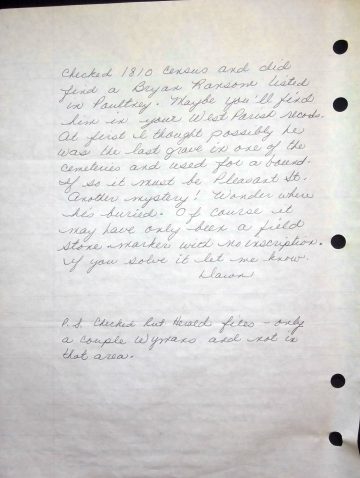 Checked 1810 census and did
find a Bryan Ransom listed
in Paultney. Maybe you'll find
him in your West Parish records.
At first I thought possibly he
was the last grave in one of the
cemeteries and used for a bound.
If so it must be Pleasant St.
Another mystery! Wonder where
he's buried. Of course it
may have only been a field
stone marker with no inscription.
If you solve it let me know.
P.S. Checked Rut Herald files - only
a couple Wymans and not in
that area.